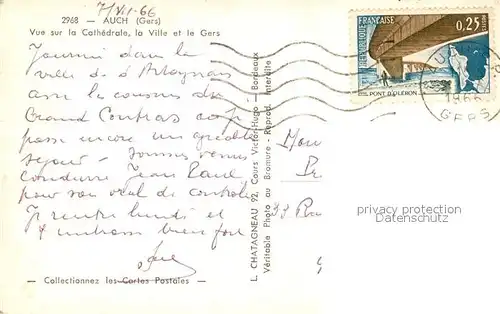 7/VII-66
2968 — AUCH (Gers)
Vue sur la Cathédrale, la Ville et le Gers
Journée dans la
ville de d'Artagnan
avec la cousine du
Grand
passe encore un agréable
séjour - Sommes venus
conduire Jean Paul
pour son vol de contrôle
Je rentre lundi et
t'embrasse bien fort
— Collectionnez les Cartes Postales —
L. CHATAGNEAU 92, Cours Victor-Hugo — Bordeaux
Véritable Photo au Bromure - Reprod. Interdite
REPUBLIQUE FRANÇAISE
0,25
POSTES
PONT D'OLÉRON
1966
GERS
Mon
93 R
privacy protection
Datenschutz